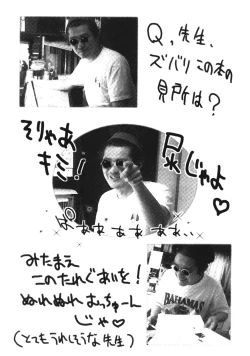 Q, 先生、
ズバリこの本の
見所は?
そりゃあ
キミ!!
尿じゃよ♡
ああああああ…
みたまえ
このたれぐあいを!
ぬれぬれおっちゅーん
じゃ♡
BAHAMAS
(とってもうれしそうな先生)